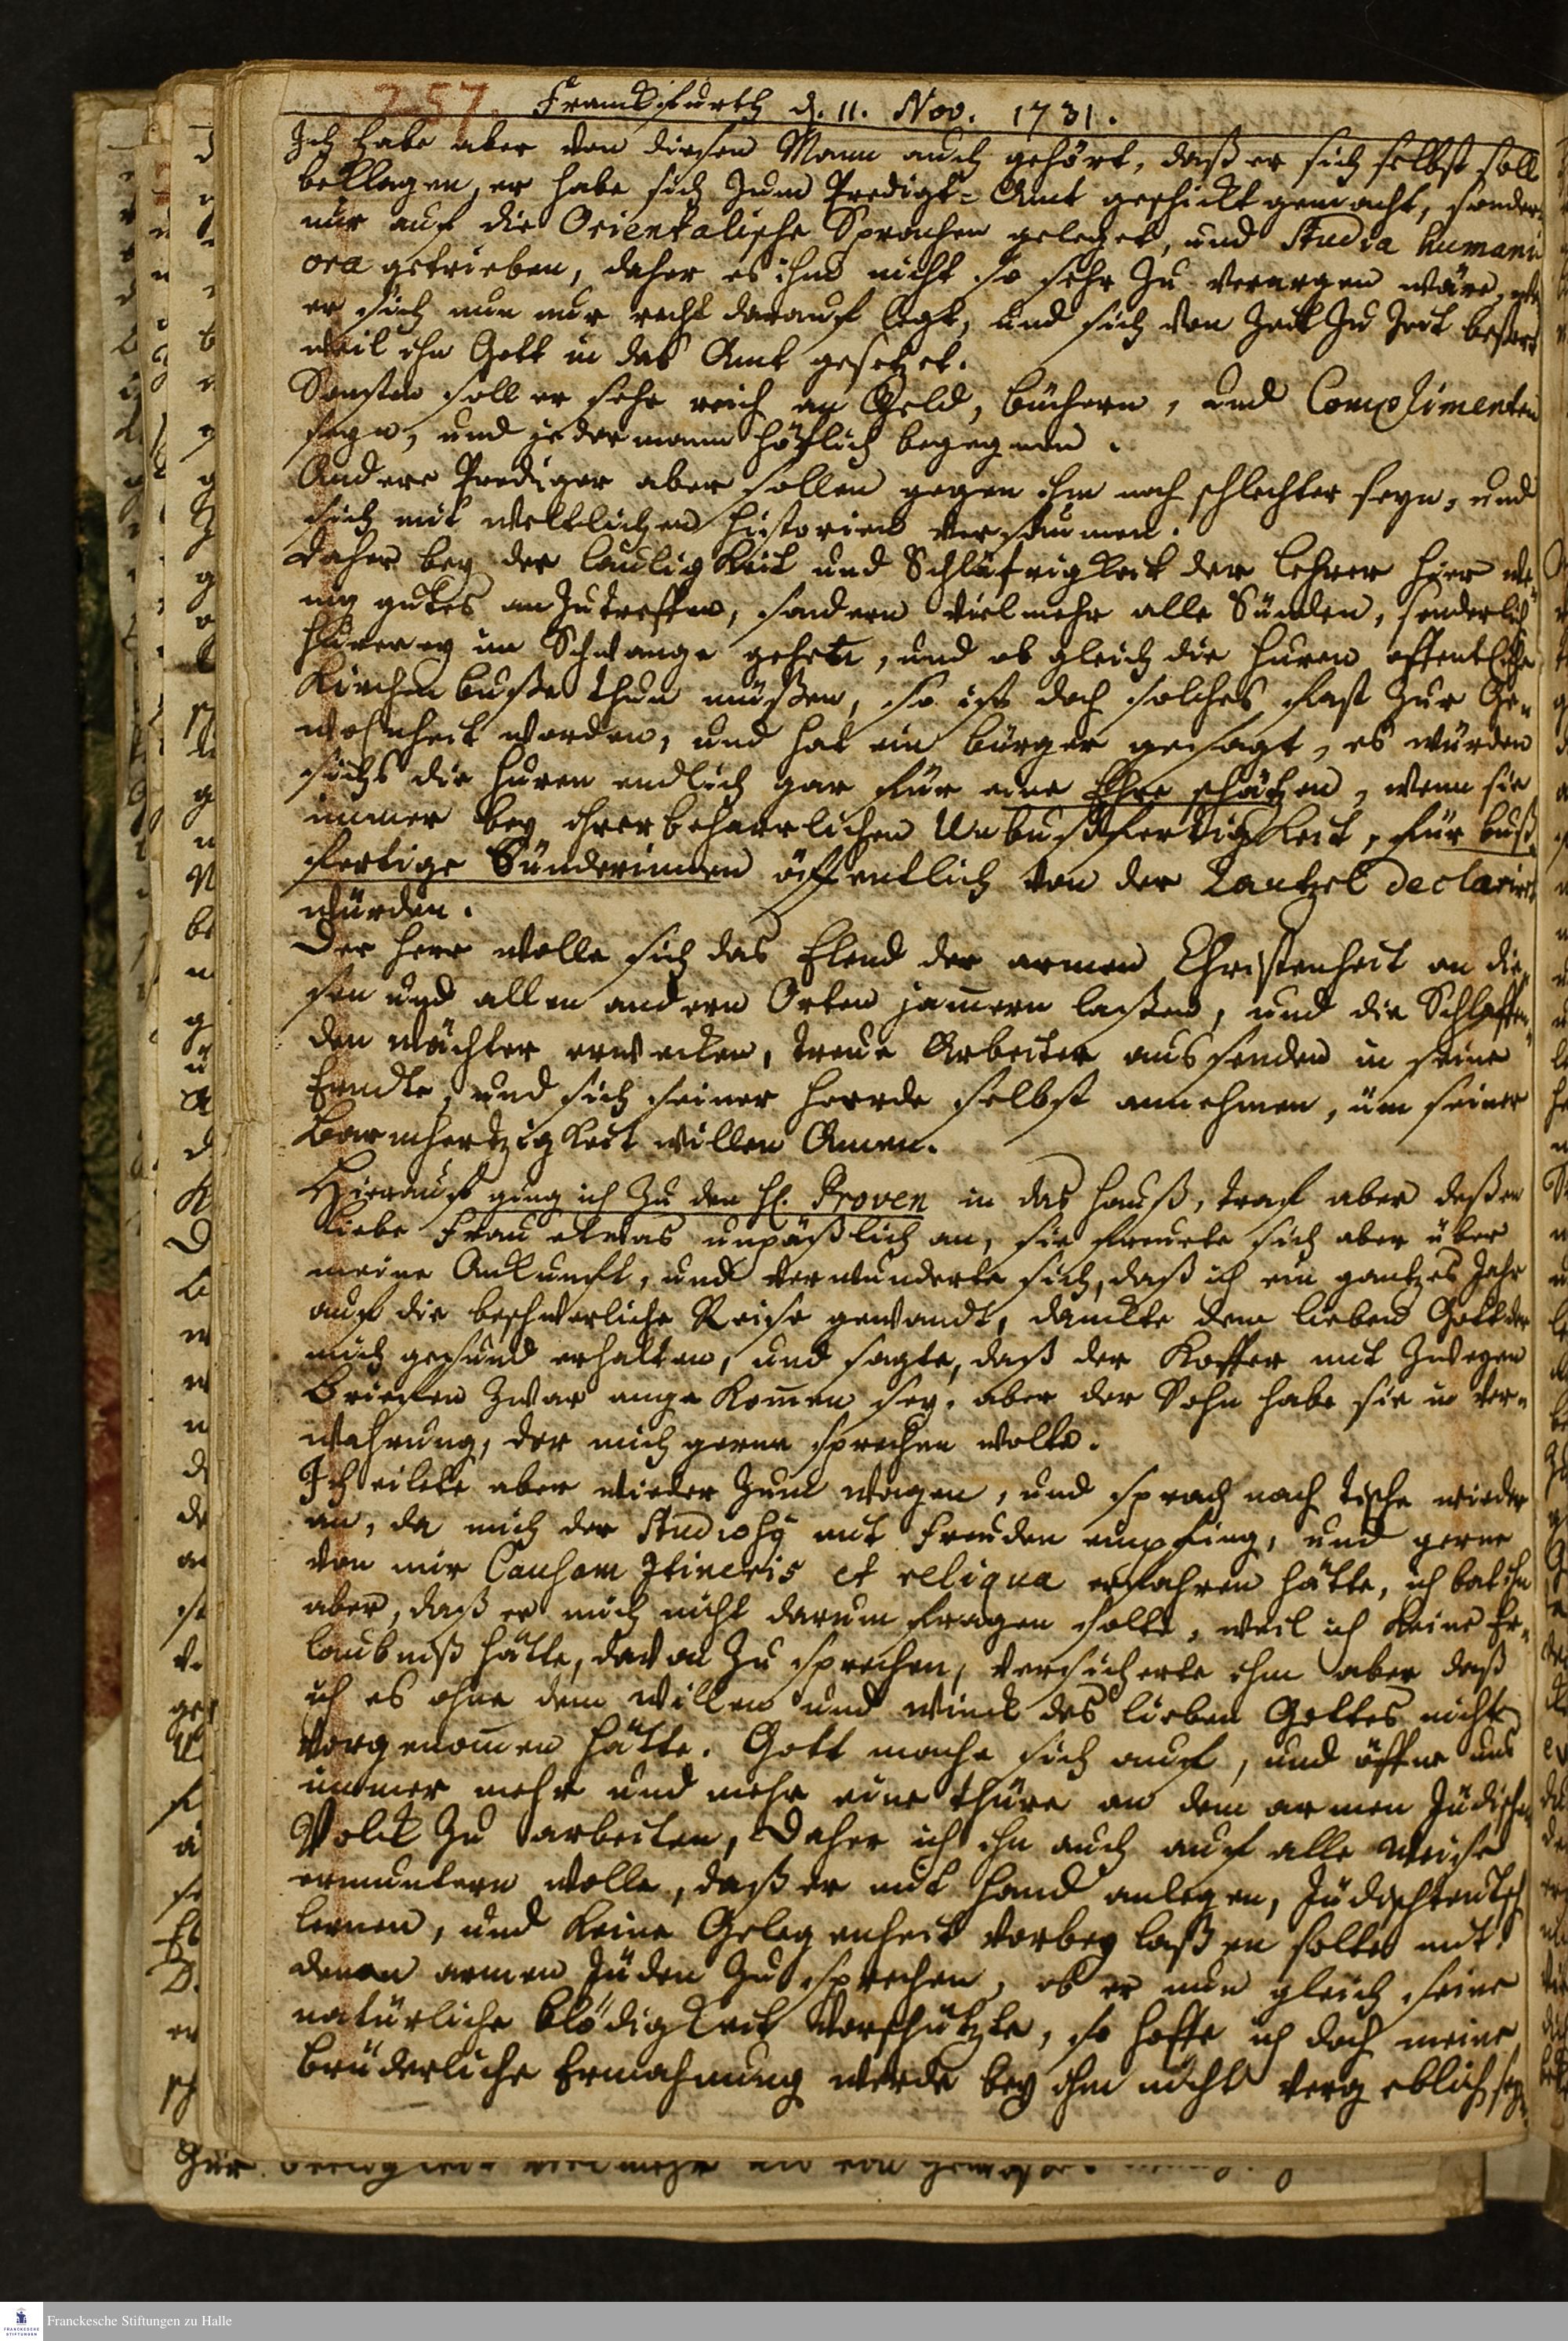 257.
Franckfurth d. 11. Nov. 1731.
Ich habe aber von diesen Mann auch gehört, daß er sich selbst soll
beklagen, er habe sich zum Predigt-Amt geschickt gemacht, sondern
nur auf die Orientalische Sprachen geleget, und Studia humani
ora getrieben, daher es ihm nicht so sehr zu verargen wäre, wenn
er sich nun nur recht darauf legt, und sich von Zeit zu Zeit beßert
weil ihn Gott in das Amt gesetzet.
Sonsten soll er sehr reich an Geld, büchern, und Complimenten
seyn, und jedermann höflich begegnen.
Andere Prediger aber sollen gegen ihm noch schlechter seyn, und
sich mit weltlichen Historien versäumen.
Daher bey der laulichkeit und Schläfrigkeit der Lehrer hier we-
nig gutes anzutreffen, sondern vielmehr alle Sünden, sonderlich
hurerey im Schwange gehen, und obgleich die huren offentliche
Kirchenbuße thun müßen, so ist doch solches fast zur Ge-
wohnheit worden, und hat ein bürger gesagt, es würden
sichs die huren endlich gar für eine Ehre schätzen, wenn sie
immer bey ihrer beharrlichen Unbußfertigkeit, für buß-
fertige Sünderinnen öffentlich von der Kantzel declariret
würden.
Der Herr wolle sich das Elend der armen Christenheit an die-
sen und allen andern Orten jammern laßen, und die Schlaffen-
den Wächter erwecken, treue Arbeiter aussenden in seine
Erndte, und sich seiner Heerde selbst annehmen, um seiner
Barmhertzigkeit willen Amen.
Hierauf ging ich zu den H. Proven in das Hauß, traf aber deßen
liebe Frau etwas unpäßlich an, sie freuete sich aber über
meine Ankunft, und verwunderte sich, daß ich ein gantzes Jahr
auf die beschwerliche Reise gewandt, danckte dem lieben Gott der
mich gesund erhalten, und sagte, daß der Koffer mit zweyen
Briefen zwar angekommen sey, aber der Sohn habe sie in Ver-
wahrung, der mich gerne sprechen wolte.
Ich eilete aber wieder zum wagen, und sprach nach Tische wieder
an, da mich der Studiosus mit Freuden empfing, und gerne
von mir Causam Itineris et reliqua erfahren hätte, ich bat ihn
aber, daß er mich nicht darum fragen solte, weil ich keine Er-
laubniß hätte, davon zu sprechen, versicherte ihm aber daß
ich es ohne dem willen und winck des lieben Gottes nicht
vorgenommen hätte. Gott mache sich auf, und öffne uns
immer mehr und mehr eine thüre an dem armen Jüdischen
Volck zu arbeiten, Daher ich ihn auch auf alle weise
ermuntern wolle, daß er mit Hand anlegen, Jüdischteutsch
lernen, und keine Gelegenheit vorbey laßen solte mit
denen armen Juden zu sprechen, ob er nun gleich seine
natürliche blödigkeit vorschützte, so hoffe ich doch meine
brüderliche Ermahnung werde bey ihm nicht vergeblich seyn.
Franckesche Stiftungen zu Halle